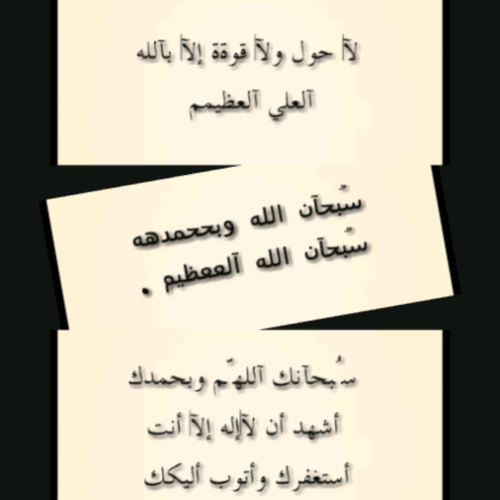 لآا حول ولآا قوةة إلآا بآلله
آلعلي آلعظيمم
سُبحآن الله وبححمدهه
سُبحآن الله آلععظيم .
سُبحآنك آللهّم وبحمدك
أشهد أن لآإله إلآا أنت
أستغفرك وأتوب أليكك